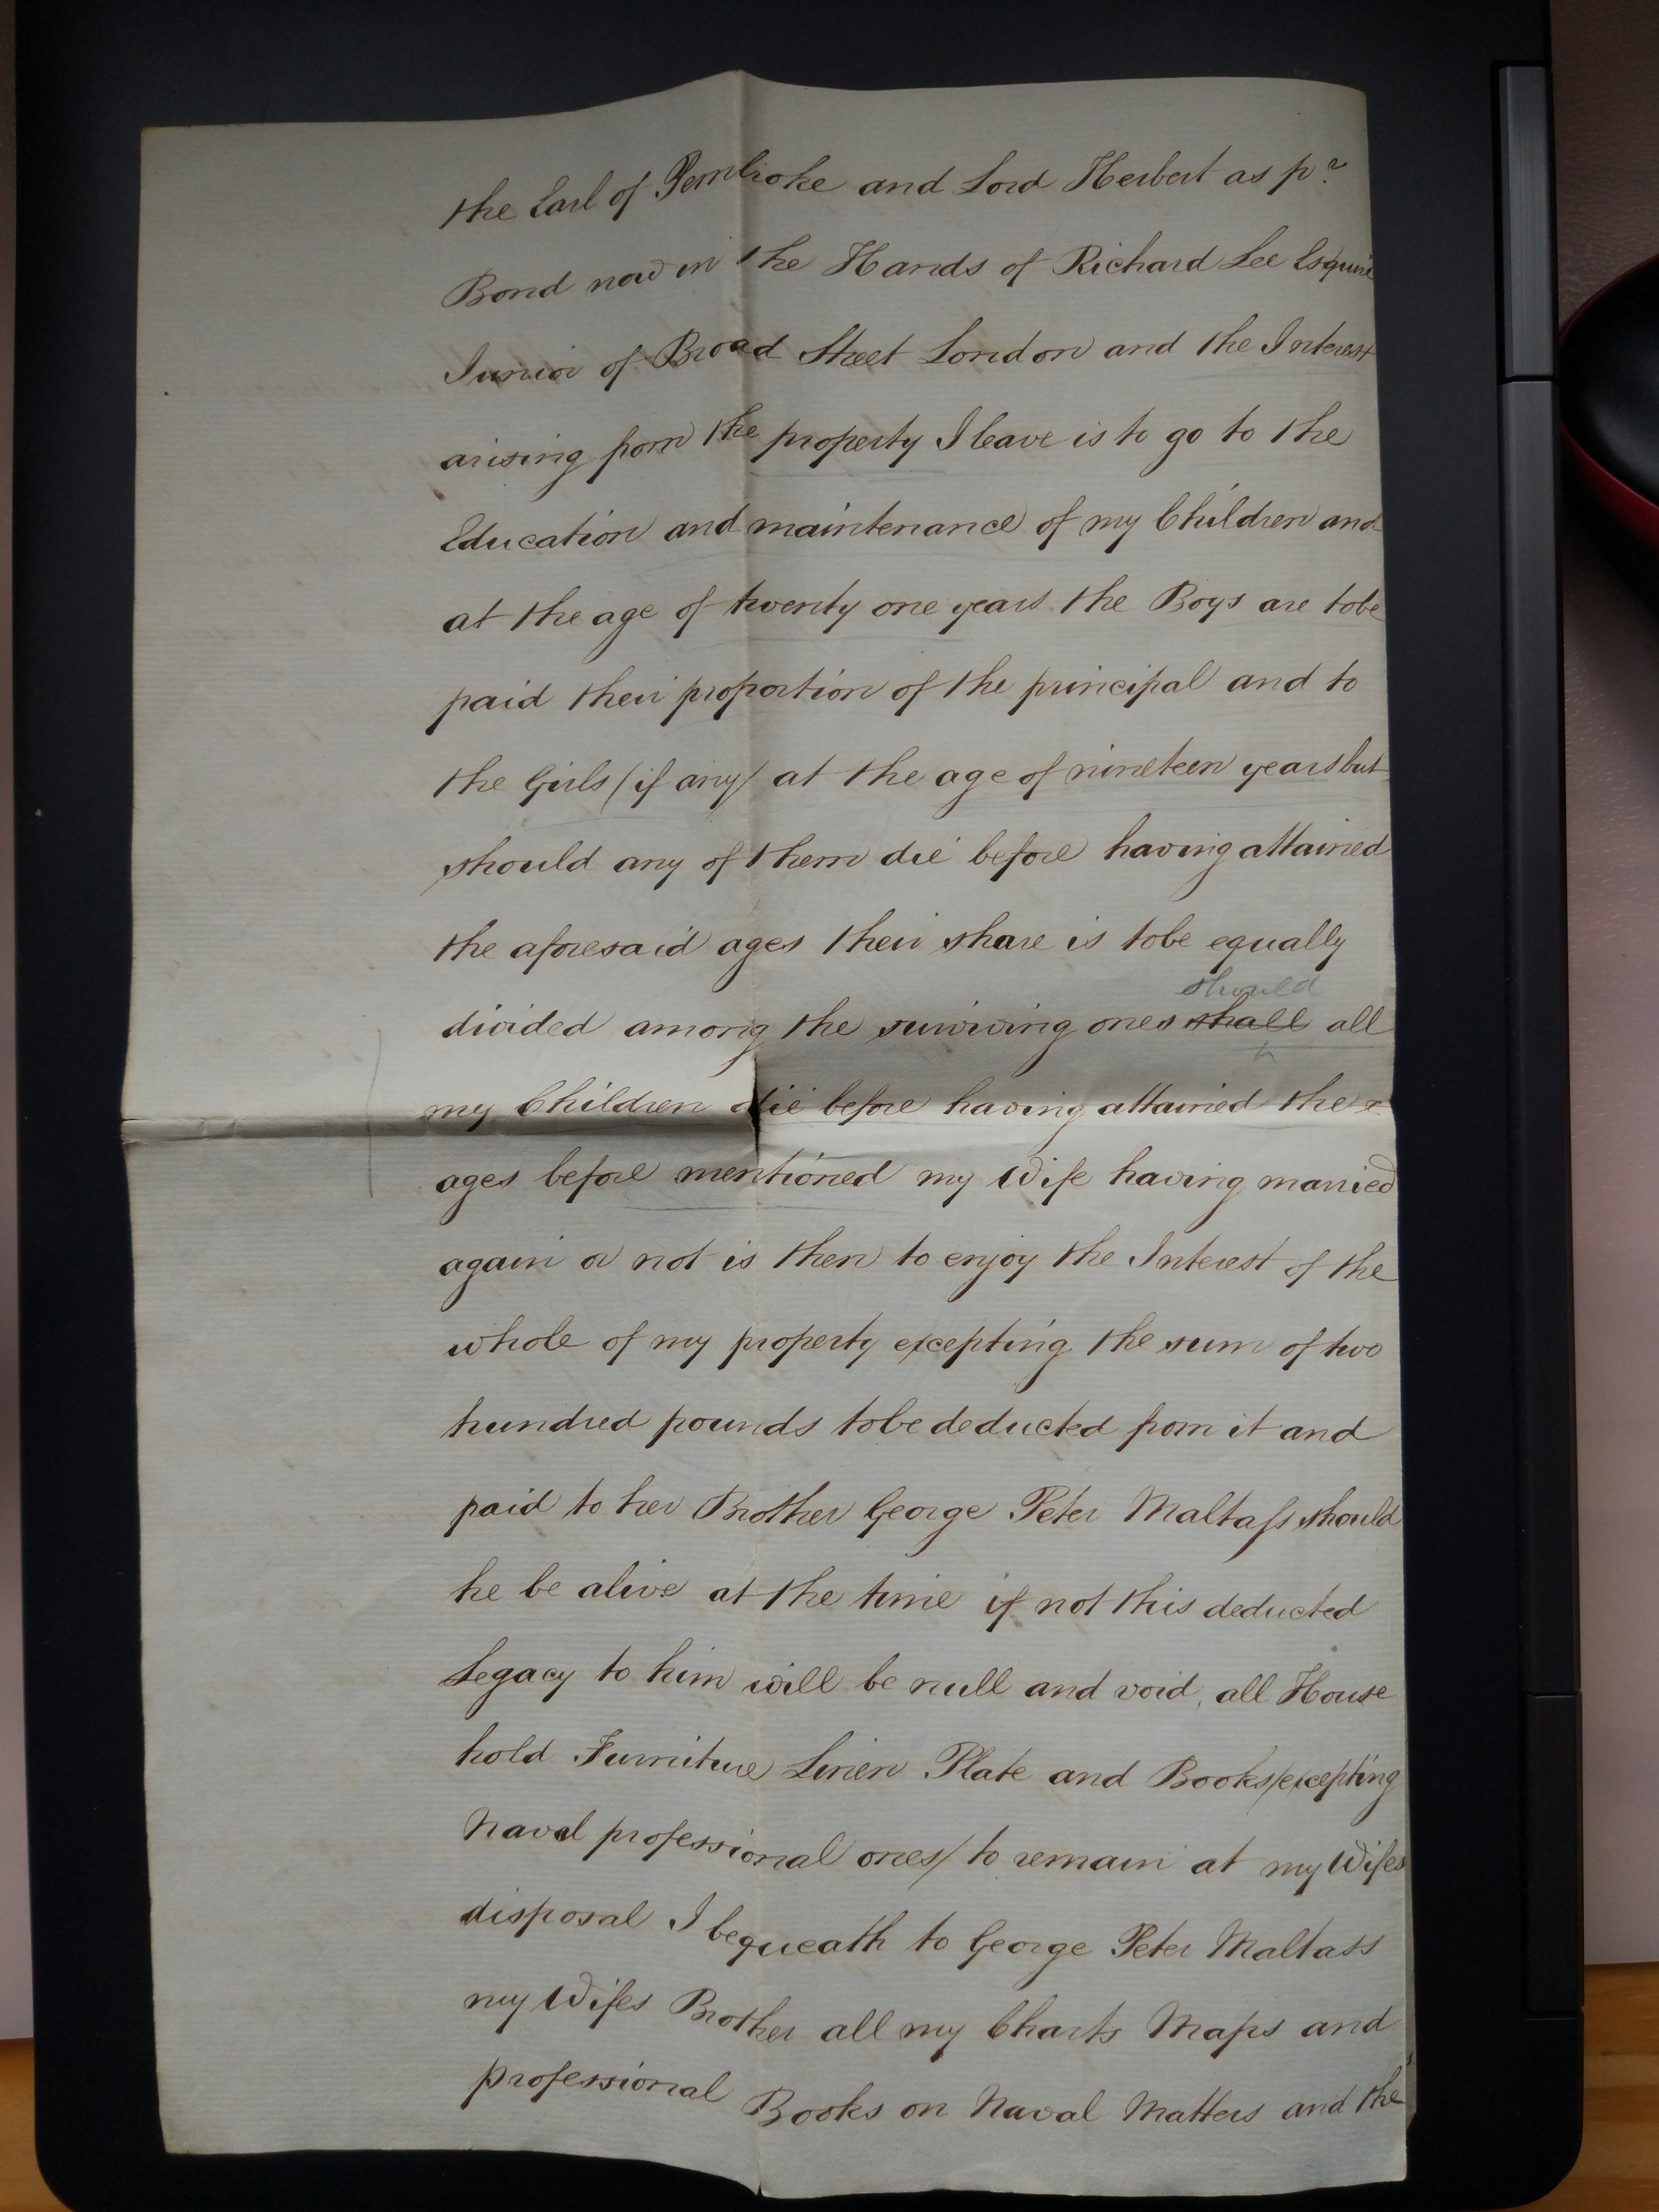 the Earl of Pembroke and Lord Herbert as pr
Bond now in the Hands of Richard Lee Esquire
Junior of Broad Street London and the Interest
arising from the property I leave is to go to the
Education and maintenance of my Children and
at the age of twenty one years the Boys are tobe
paid their proportion of the principal and to
the Girls /if any/ at the age of nineteen years but
should any of them die before having attained
the aforesaid ages their share is tobe equally
should
divided among the surviving ones shall all
my Children die before having attained the
ages before mentioned my Wife having married
again or not is then to enjoy the Interest of the
whole of my property excepting the sum of two
hundred pounds tobe deducted from it and
paid to her Brother George Peter Maltaſs should
he be alive at the time if not this deducted
Legacy to him will be null and void, all House
hold Furniture Linen Plate and Books/excepting
Naval professional ones/ to remain at my Wifes
disposal I bequeath to George Peter Maltass
my Wifes Brother all my Charts Maps and
professional Books on Naval Matters and the